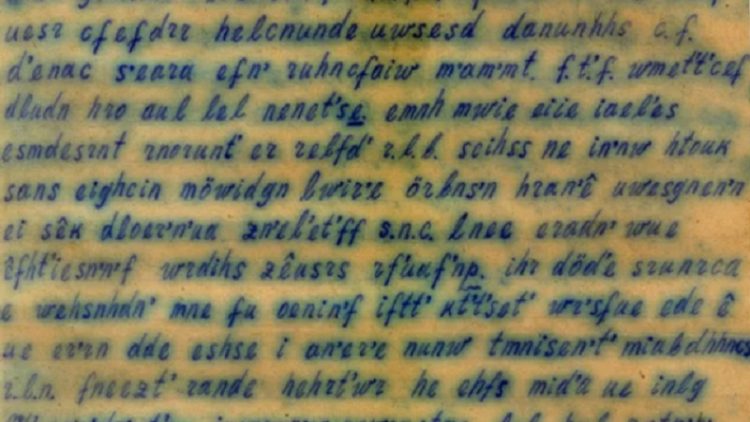 uesr cfefdrr helcnunde uwsesd danunhhs c.f.
d'enac s'eara efn' ruhncfaiw m'am'mt. f.t'.f. wmet't'cef
dludn hro aul lel nenet'se. emnh mwie eiie iaeles
esmdesrnt rnorunt' er relfd' r.l.b. scihss ne in'nw htouk
sans eighcin möwidgn lwir'e örbnsn hran'ê uwesgnen'n
ei sêk dloer'n'ua zn'el'et'ff s.n.c. lnee eradn' wue
êfht'iesn'n'f wrdihs zêusrs rf'uaf'np. ihr död'e srunrca
e wehsnhdn' mne fu oenin'f iftt' kt't'set' wr'sfue ede ê
ue er'rn dde eshse i an'er'e nunw tmnisen't' miabdhhnes
r.l.n. fneezt' rande hehrt'wr he ehfs mid'a ue inlg